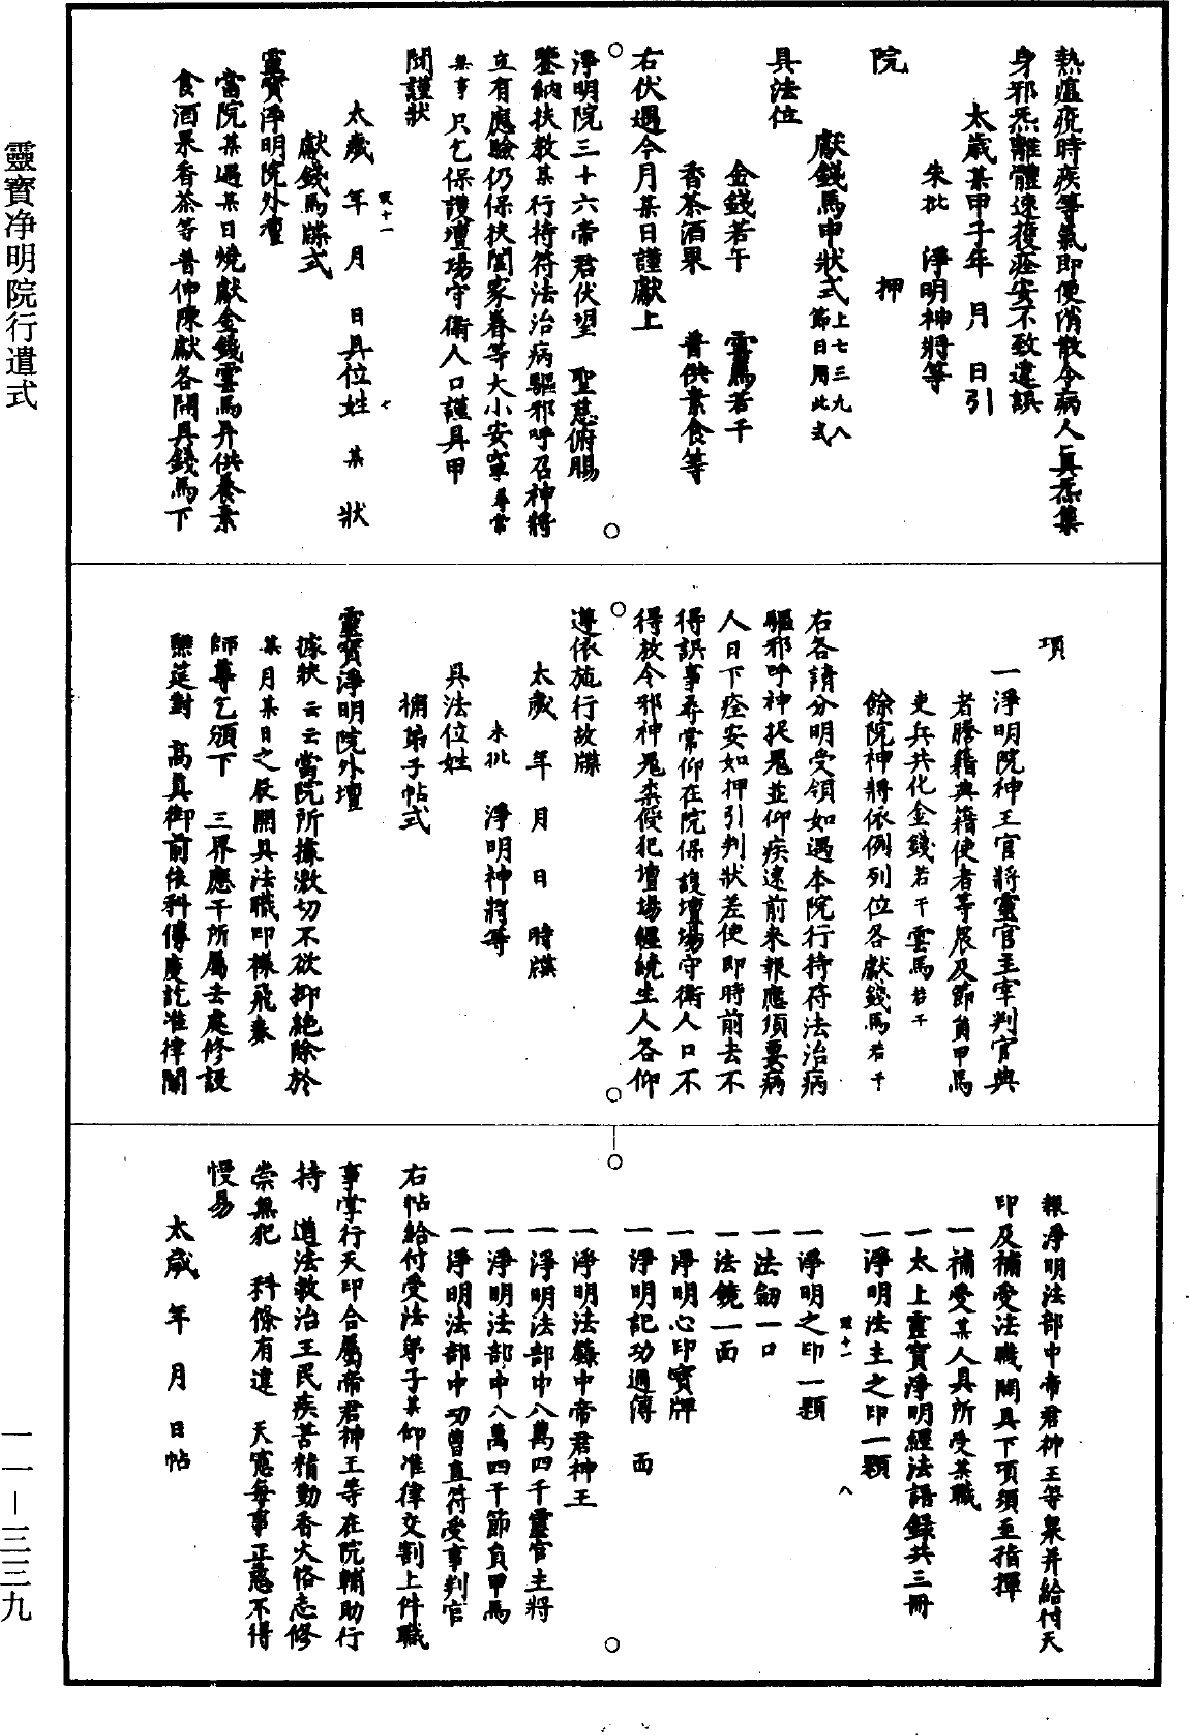 熱瘟疫時疾等氣即便消散令病人真炁集
身邪炁離體速獲痊安不致違誤
太歲某甲子年　月　日引
朱批　淨明神將等
院　　　　押
獻錢馬申狀式上七三九八節日用此式
具法位
金錢若干　雲馬若干
香茶酒果　普供素食等
右伏遇今月某日謹獻上
淨明院三十六帝君伏望　聖慈俯賜
鑒納扶教某行持符法治病驅邪呼召神將
立有應驗仍保扶闔家眷等大小安寧尋常
無事只乞保護壇場守衛人口謹具申
聞謹狀
太歲　年　月　日具位姓　某　狀
獻錢馬牒式
靈寶淨明院外壇
當院某遇某日燒獻金錢雲馬并供養素
食酒果香茶等普伸陳獻各開具錢馬下
項
一淨明院神王官將靈官主宰判官典
者騰籍典籍使者等展及節負甲馬
吏兵共化金錢若干雲馬若干
餘院神將依例列位各獻錢馬若干
右各請分明受領如遇本院行持符法治病
驅邪呼神捉鬼並仰疾速前來報應須要病
人日下痊安如押引判狀差使即時前去不
得誤事尋常仰在院保護壇場守衛人口不
得放令邪神鬼祟侵犯壇場經繞生人各仰
遵依施行故牒
太歲　年　月　日　時牒
朱批　淨明神將等
具法位姓
補弟子帖式
靈寶淨明院外壇
據狀云云當院所據激切不欲抑絕除於
某月某日之辰開具法職印樣飛奏
師尊乞頒下　三界應干所屬去處修設
醮筵對　高真御前依科傳度訖准律關
報淨明法部中帝君神王等衆并給付天
印及補受法職開具下項須至指揮
一補受某人具所受某職
一太上靈寶淨明經法語錄共三冊
一淨明法主之印一顆
一淨明之印一顆
一法劒一口
一法鏡一面
一淨明心印寶牌
一淨明記功過傳　面
一淨明法籙中帝君神王
一淨明法部中八萬四千靈官主將
一淨明法部中八萬四千節負甲馬
一淨明法部中功曹直符受事判官
右帖給付受法弟子某仰准律交割上件職
事掌行天印合屬帝君神王等在院輔助行
持　道法救治王民疾苦精勤香火恪志修
崇無犯　科條有違　天憲每事正慤不得
慢易
太歲　年　月　日帖
靈寶淨明院行遣式
一一—三三九